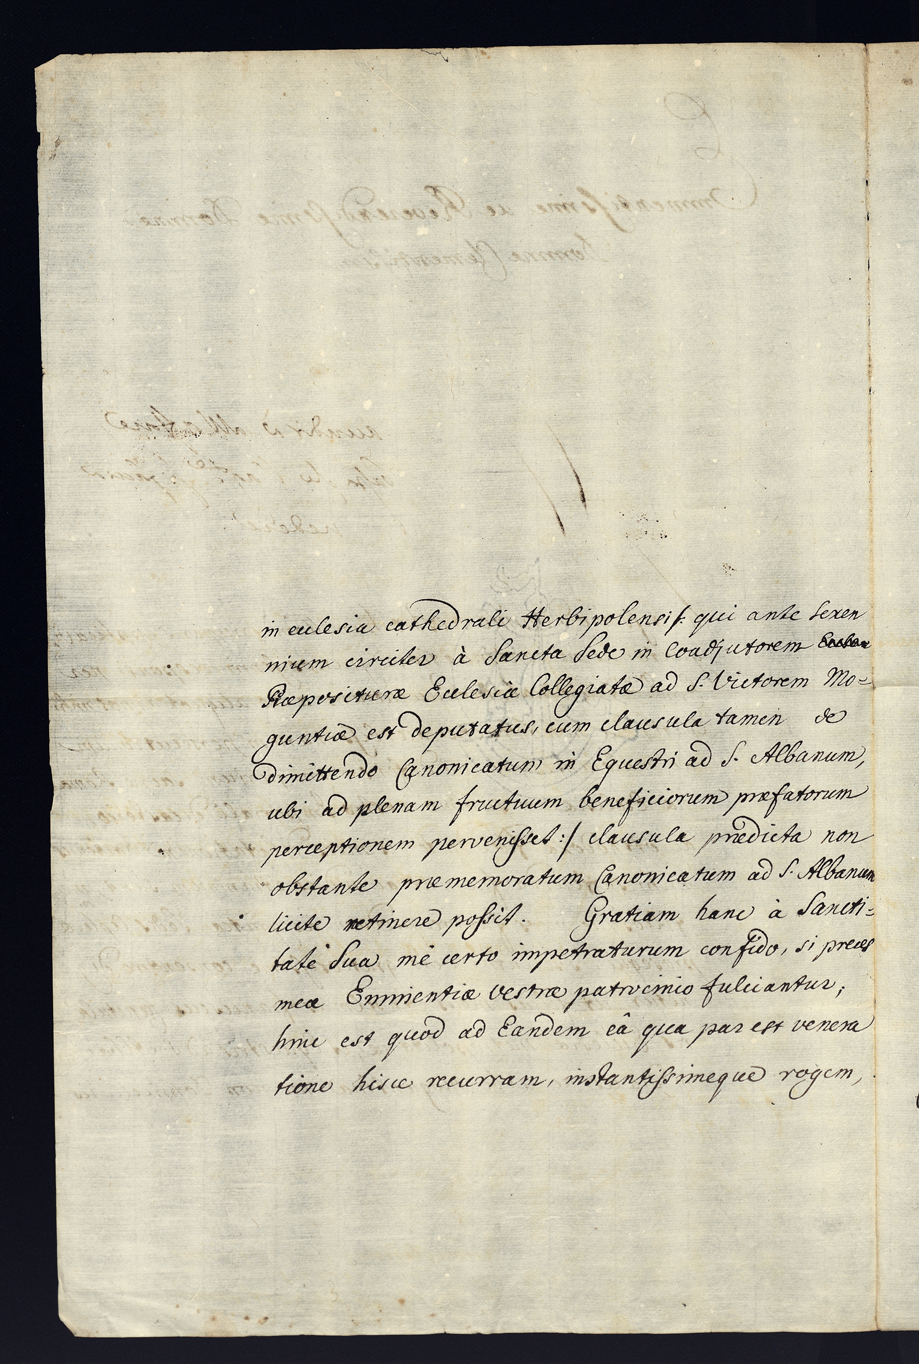 in eclesia cathedrali Herbipolensi /: qui ante sexen
nium circiter à Sancta Sede in Coadjutorem
Præposituræ Eclesiæ Collegiatæ ad S. Victorem Mo=
guntiæ est deputatus, cum clausula tamen de
dimittendo Canonicatum in Equestri ad S. Albanum,
ubi ad plenam fructuum beneficiorum præfatorum
perceptionem pervenisset :/ clausula prædicta non
obstante præmemoratum Canonicatum ad S. Albanum
licite retinere possit. Gratiam hanc à Sancti=
tate Sua me certo impetraturum confido, si preces
meæ Eminentiæ Vestræ patrocinio fulciantur;
hinc est quod ad Eandem eâ qua par est venera
tione hisce recurram, instantissimeque rogem,